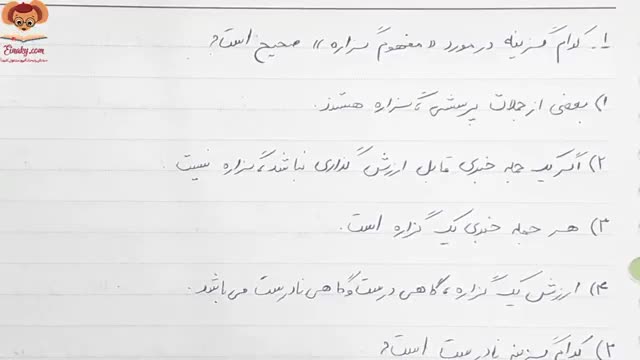 Einaky.com
۱- کدام گزینه در مورد «مفهوم گزاره» صحیح است؟
۱) بعضی از جملات پرسشی، گزاره هستند.
۲) اگر یک جمله خبری قابل ارزش گذاری نباشد، گزاره نیست.
۳) هر جمله خبری یک گزاره است.
۴) ارزش یک گزاره، گاهی درست و گاهی نادرست می باشد.
۲) کدام گزینه نادرست است؟